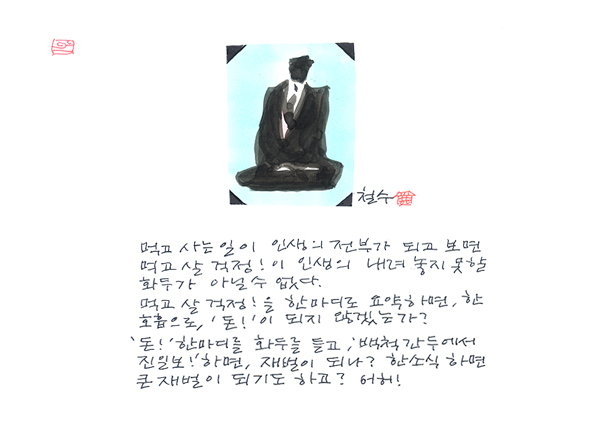 철수
먹고 사는 일이 인생의 전부가 되고 보면
먹고 살 걱정!이 인생의 내려 놓지 못할
화두가 아닐 수 없다.
먹고 살 걱정!을 한마디로 요약하면, 한
호흡으로, '돈!'이 되지 않겠는가?
'돈!' 한마디를 화두를 들고, '백척간두에서
진일보!'하면, 재벌이 되나? 한소식 하면
큰 재벌이 되기도 하고? 어허!